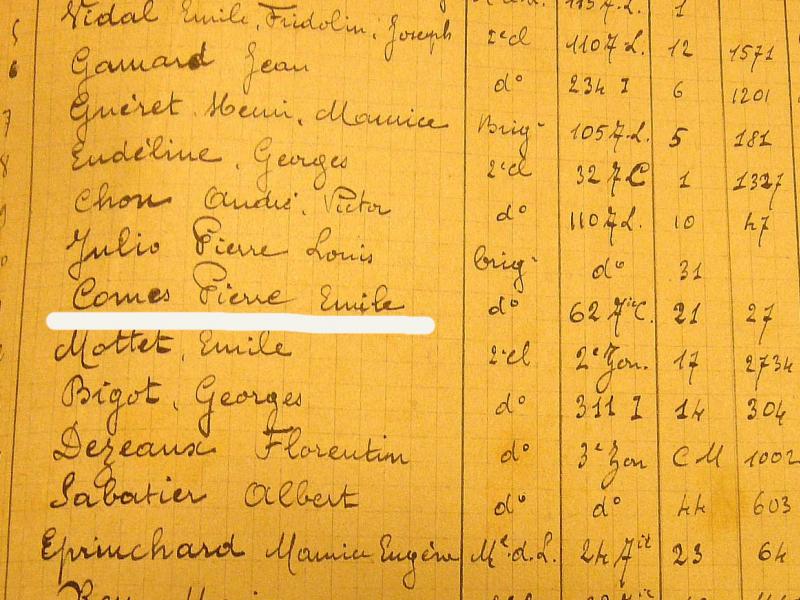 1137.L. 1
5 Vidal Emile, Fridolin, Joseph 2e cl 110 7.L. 12 1571
6 Gamard Jean do 234 I 6 1201
7 Guéret Henri, Maurice Brig- 105 7.L. 5 181
8 Eudéline, Georges 2e cl 32 7 C 1 1327
Chon André, Victor do 110 7.L. 10 47
Julio Pierre Louis brig- do 31
Comes Pierre Emile do 62 7it C. 21 27
Mottet, Emile 2e cl 2e Zon. 17 2734
Bigot, Georges do 311 I 14 304
Dezeaux Florentin do 3e Zon C M 1002
Sabatier Albert do do 44 603
Eprinchard Maurice Eugène Mal.d.L. 24 7it 23 64